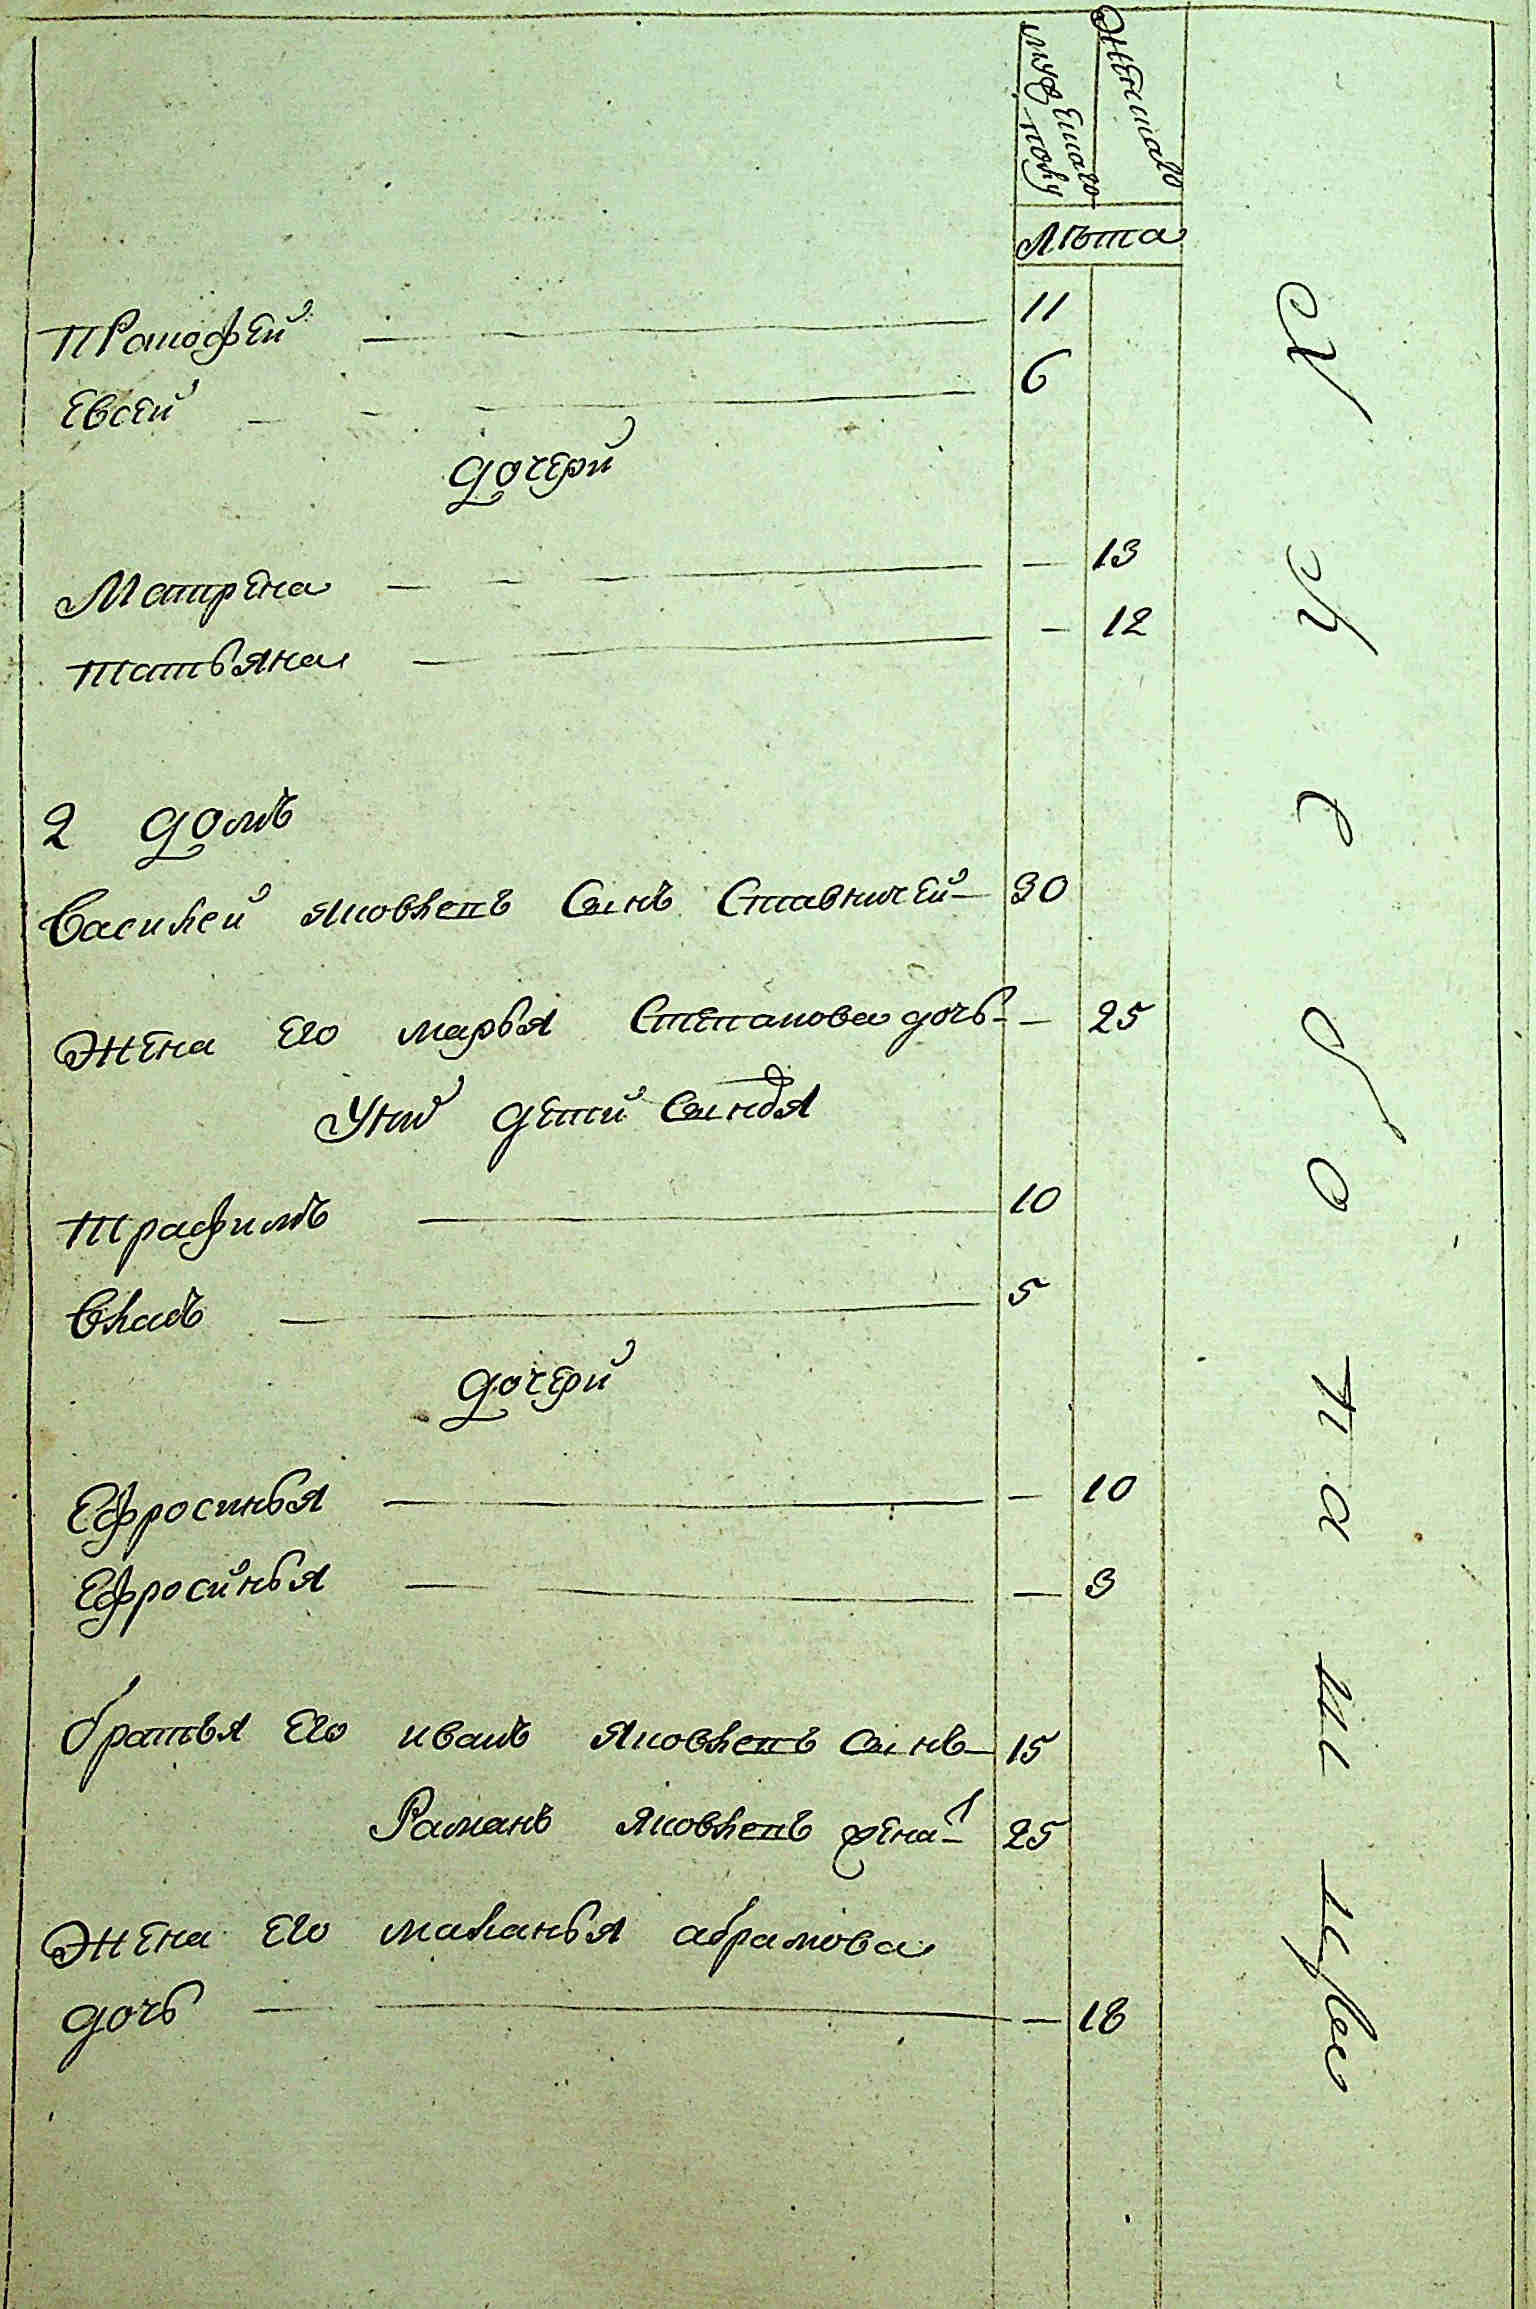 мужеска полу
женска
лѣта
Пракофей 11
Евсей 6
дочери
Матрена — 13
татьяна — 12
2 домъ
Василей яковлевъ Сынъ Ставничей 30
жена Его марья Степанова дочь — 25
У них дети Сыновья
трафимъ 10
Власъ 5
дочери
Ефросинья — 10
Ефросинья — 3
братья Его иванъ яковлевъ Сынъ 15
Раманъ яковлевъ 25
жена Его маланья абрамова
дочь — 18